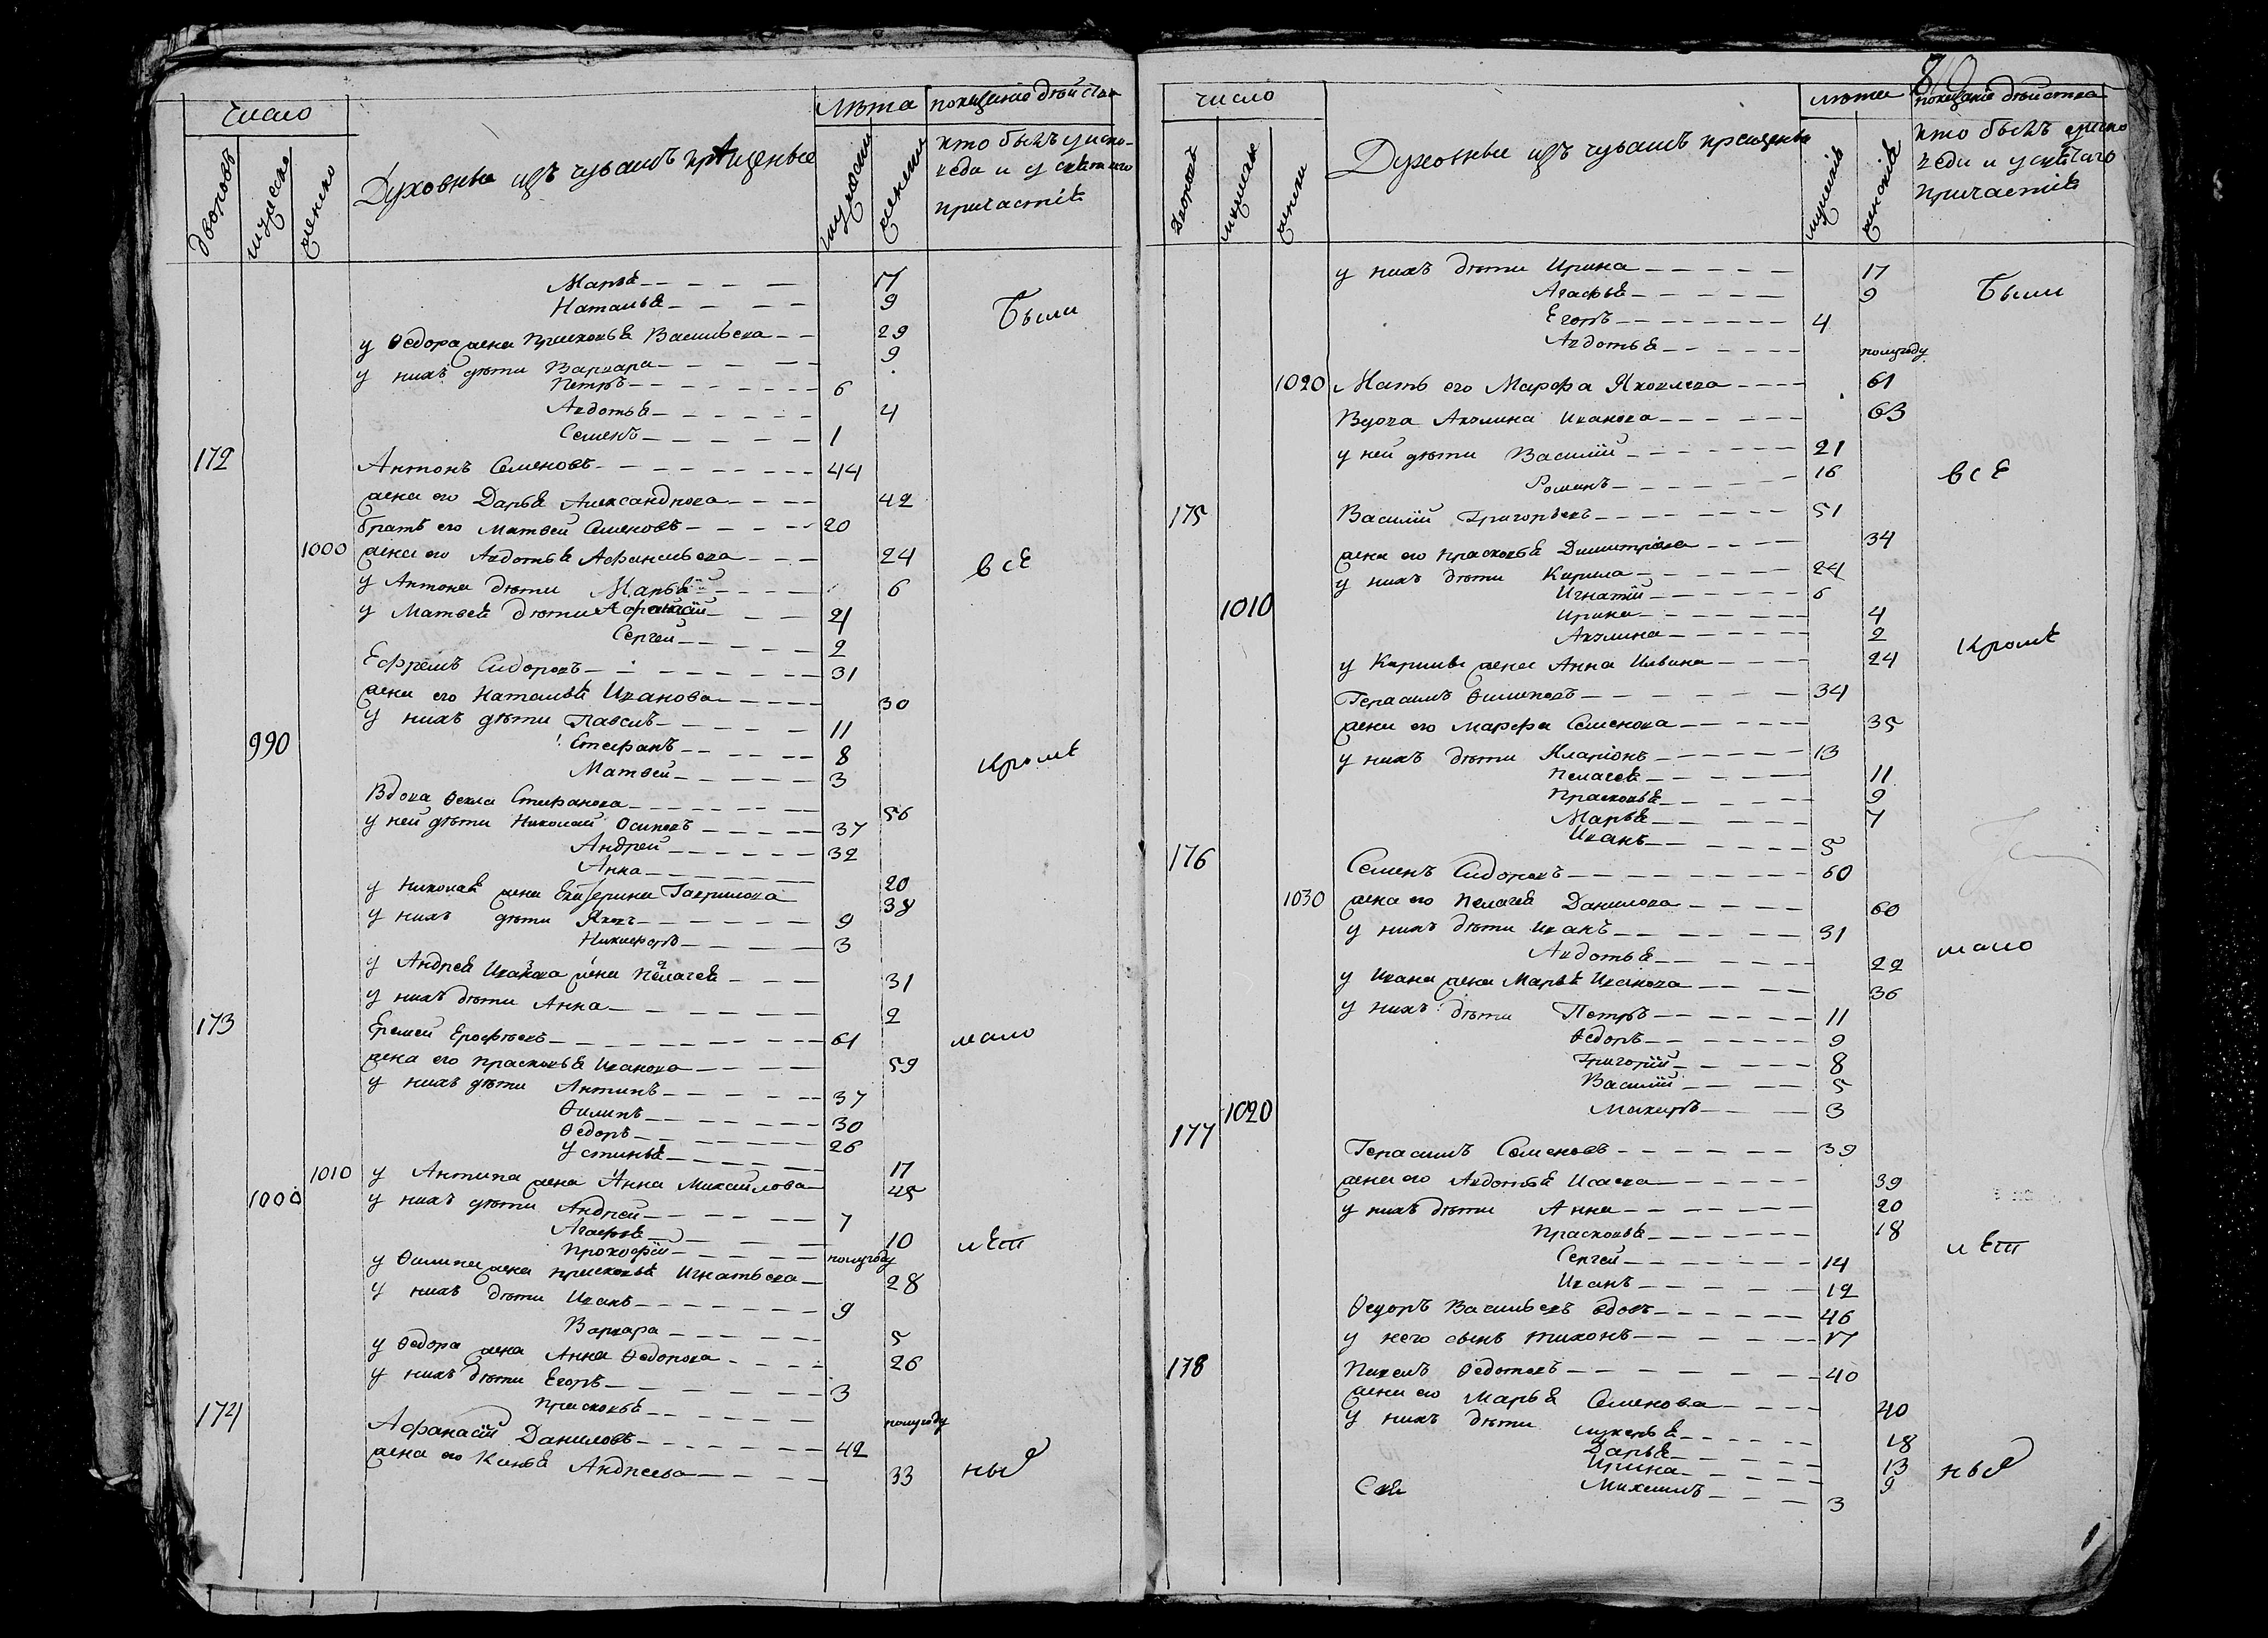 число
Лѣта показаніе дѣйства
дворовъ
мужеска
женска
Духовныя изъ чувашъ крѣщеныя
мужеска
женска
кто былъ у испо-
веди и у святаго
причастія
Марья 17
Наталья 9
Были
у Ѳедора жена Прасковья Васильева 29
у нихъ дѣти Варвара 9
Петръ 6
Авдотья 4
Семенъ 1
172 Антонъ Семеновъ 44
жена его Дарья Александрова 42
братъ его Матвей Семеновъ 20
1000 жена его Авдотья Афанасьева 24
всѣ
у Антона дѣти Марья 6
у Матвея дѣти Афонасій 21
Сергеи 2
Ефремъ Сидоровъ 31
жена его Наталья Иванова 30
у нихъ дѣти Павелъ 11
990 Стефанъ 8
кромѣ
Матвеи 3
Вдова Ѳекла Стефанова 56
у ней дѣти Николай Осиповъ 37
Андреи 32
Анна 20
у Николая жена Екатерина Гаврилова 38
у нихъ дѣти Яковъ 9
Никифоръ 3
у Андрея Иванова жена Пелагея 31
у нихъ дѣти Анна 2
173 Еремеи Ерофѣевъ 61
мало
жена его Прасковья Иванова 59
у нихъ дѣти Антипъ 37
Ѳилипъ 30
Ѳедоръ 26
Устинья 17
1010 у Антипа жена Анна Михаилова 45
1000 у нихъ дѣти Андреи 7
Агафья 10
лѣт
Прокофій полугоду
у Ѳилипа жена Прасковья Игнатьева 28
у нихъ дѣти Иванъ 9
Варвара 5
у Ѳедора жена Анна Ѳедорова 26
у нихъ дѣти Егоръ 3
Прасковья полугоду
174 Афанасій Даниловъ 42
жена его Ксенья Андреева 33
ныя
число
лѣта показаніе дѣйства
Дворовъ
мужеска
женска
Духовныя изъ чувашъ крещеныя
мужескъ
женскія
кто былъ у испо
веди и у святаго
причастія
у нихъ дѣти Ирина 17
Агафья 9
Были
Егоръ 4
Авдотья полугоду
1020 Мать его Марфа Яковлева 61
Вдова Акулина Иванова 63
у неи дѣти Василій 21
Романъ 16
всѣ
175 Василій Григорьевъ 51
жена его Прасковья Димитріева 34
у нихъ дѣти Кирила 24
Игнатій 6
1010 Ирина 4
Акулина 2
кромѣ
у Кирилы жена Анна Ильина 24
Герасимъ Ѳилиповъ 34
жена его Марфа Семенова 35
у нихъ дѣти Иларіонъ 13
Пелагея 11
Прасковья 9
Марья 7
Иванъ 5
176 Семенъ Сидоровъ 60
1030 жена его Пелагея Данилова 60
у нихъ дѣти Иванъ 31
Авдотья 22
мало
у Ивана жена Марья Иванова 36
у нихъ дѣти Петръ 11
Ѳедоръ 9
Григорій 8
Василій 5
1020 Макаръ 3
177 Герасимъ Семеновъ 39
жена его Авдотья Исаева 39
у нихъ дѣти Анна 20
Прасковья 18
лѣт
Сергеи 14
Иванъ 12
Ѳедоръ Васильевъ вдовъ 46
у него сынъ Тихонъ 17
178 Павелъ Ѳедотовъ 40
жена его Марья Семенова 40
у нихъ дѣти Лукерья 18
Дарья 13
Ирина 9
ныя
Михаилъ 3